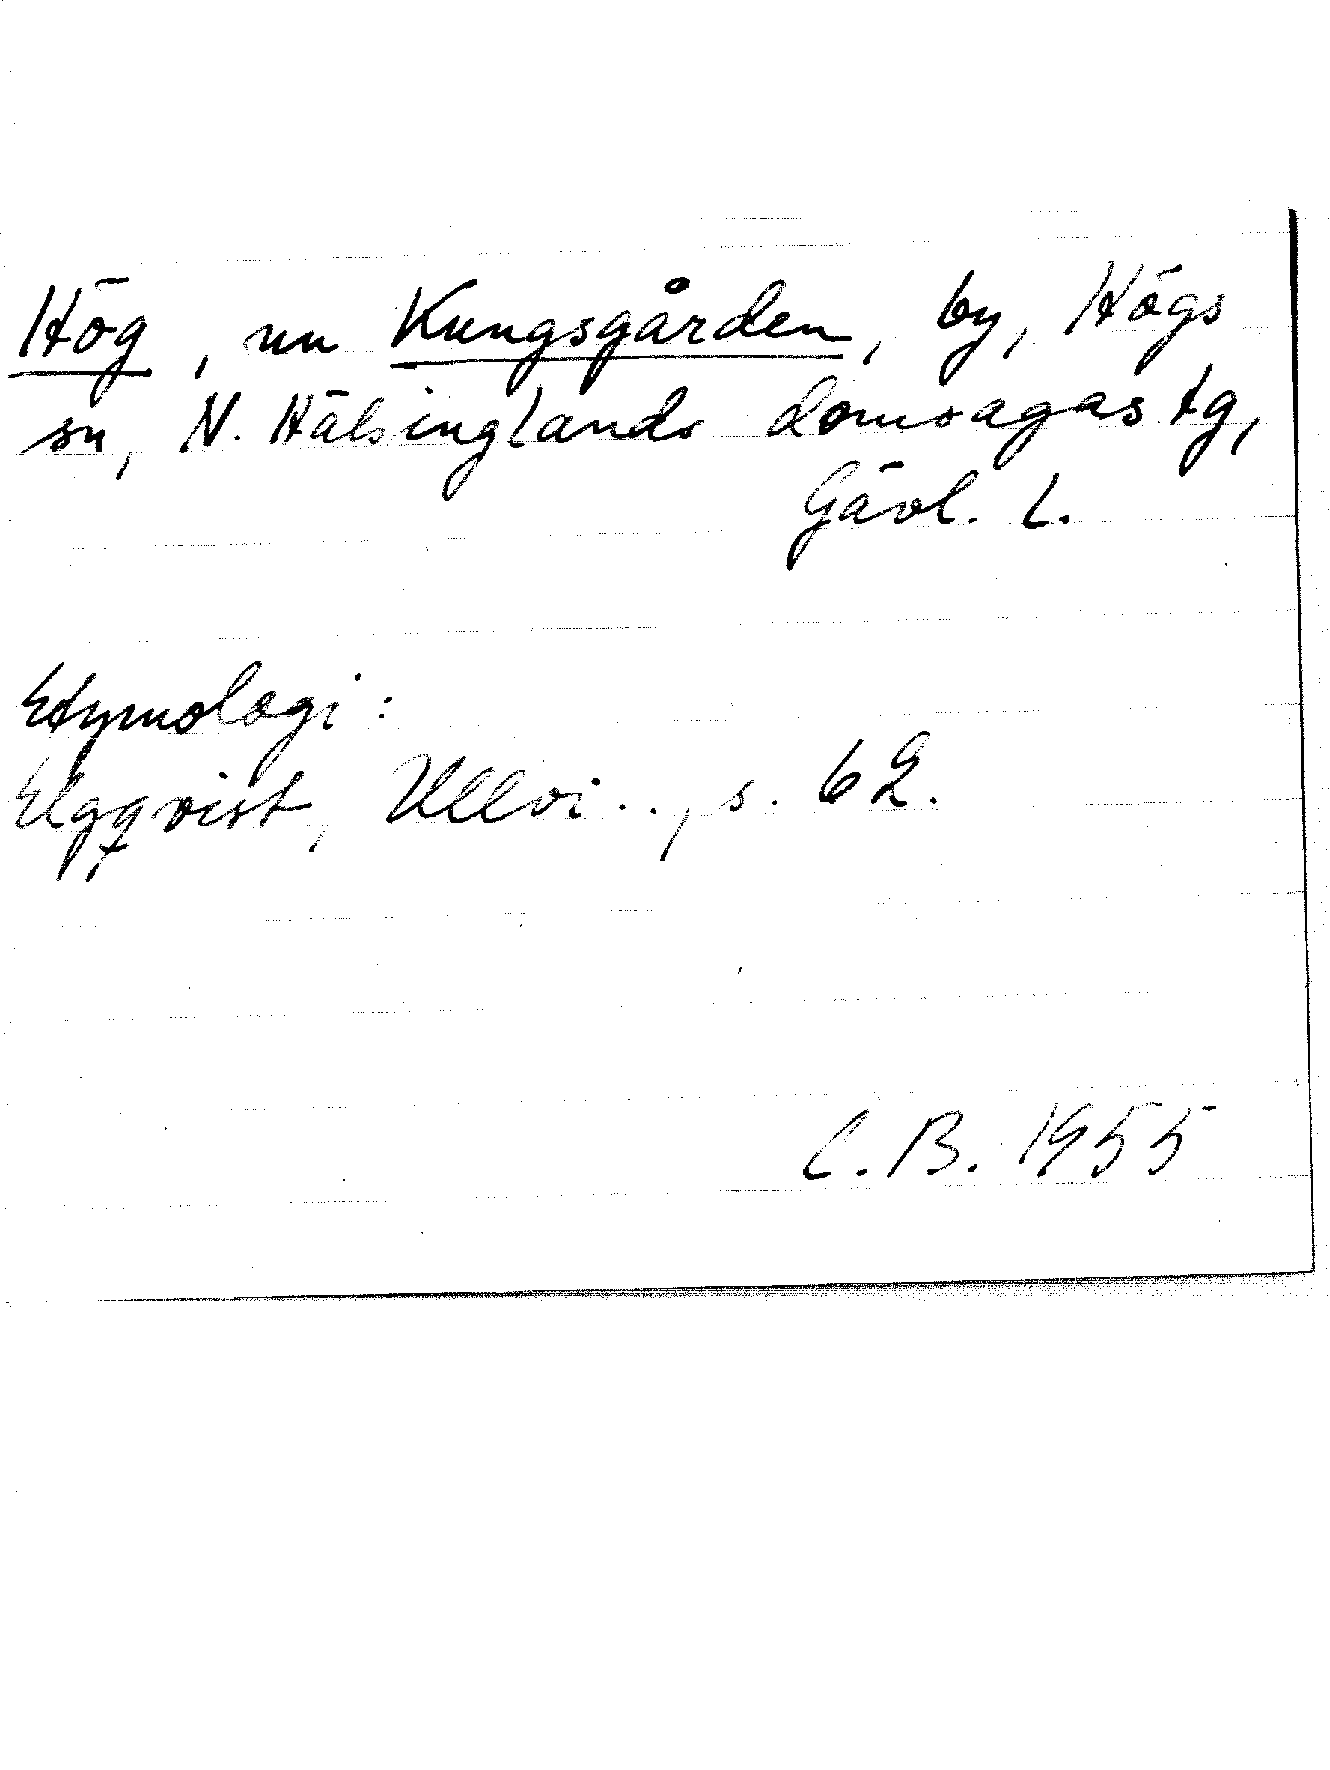 Hög, nu Kungsgården, by, Högs
sn, N. Hälsinglands domsagas tg,
Gävl. L.
Etymologi:
Elgqvist, Ullvi.., s. 62.
C.B. 1955